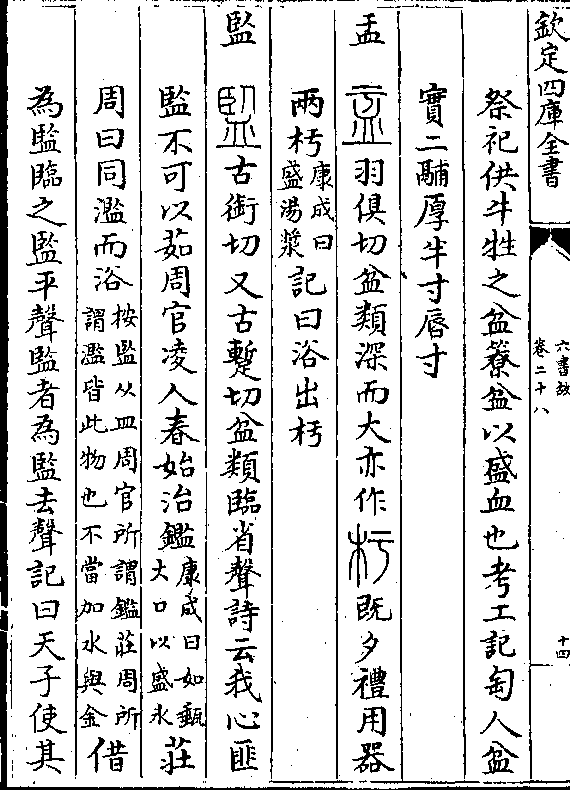 欽定四庫全書
六書故
卷二十八
十四
祭祀供牛牲之盆簝盆以盛血也考工記匋人盆
實二鬴厚半寸脣寸
盂 羽俱切盆類深而大亦作杅既夕禮用器
兩杅康成曰盛湯漿記曰浴出杅
監 古銜切又古蹔切盆類臨省聲詩云我心匪
監不可以茹周官凌人春始治鑑康成曰如甀大口以盛氷莊
周曰同濫而浴按監从皿周官所謂鑑莊周所謂濫皆此物也不當加水與金借
為監臨之監平聲監者為監去聲記曰天子使其